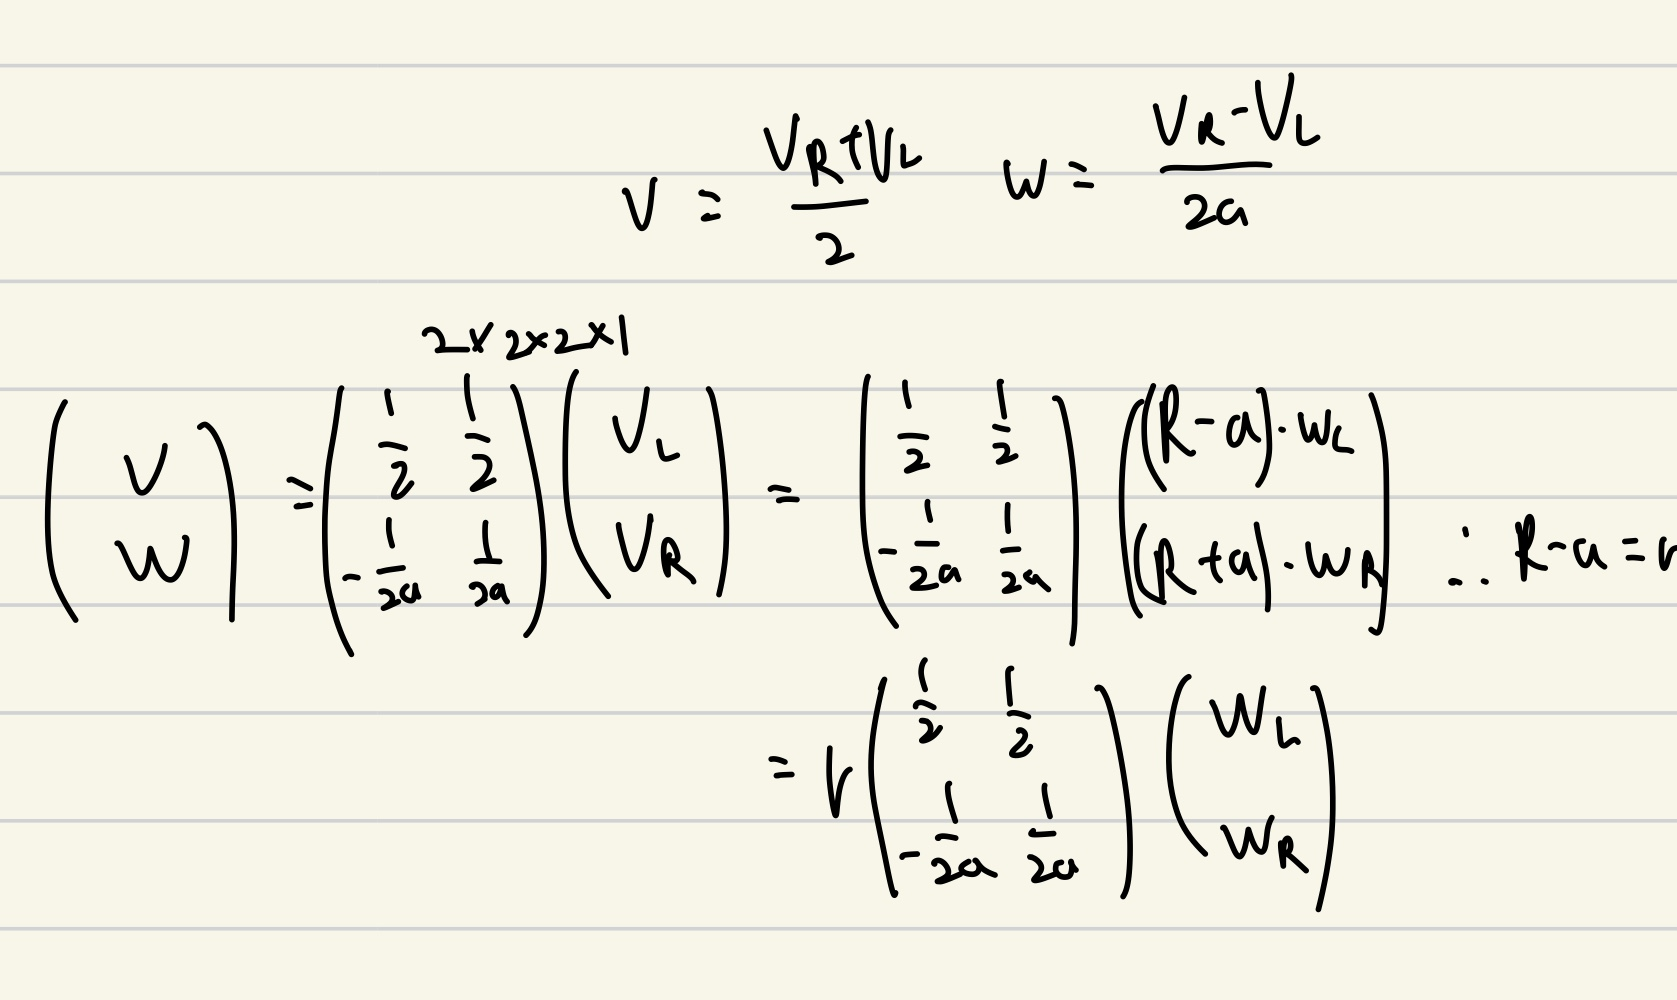 V = (V_R+V_L)/2   w = (V_R-V_L)/2a
2×2×2×1
(V; W) = (1/2 1/2; -1/2a 1/2a)(V_L; V_R) = (1/2 1/2; -1/2a 1/2a)((R-a)·w_L; (R+a)·w_R) ∴ R-a=r
= r(1/2 1/2; -1/2a 1/2a)(W_L; W_R)